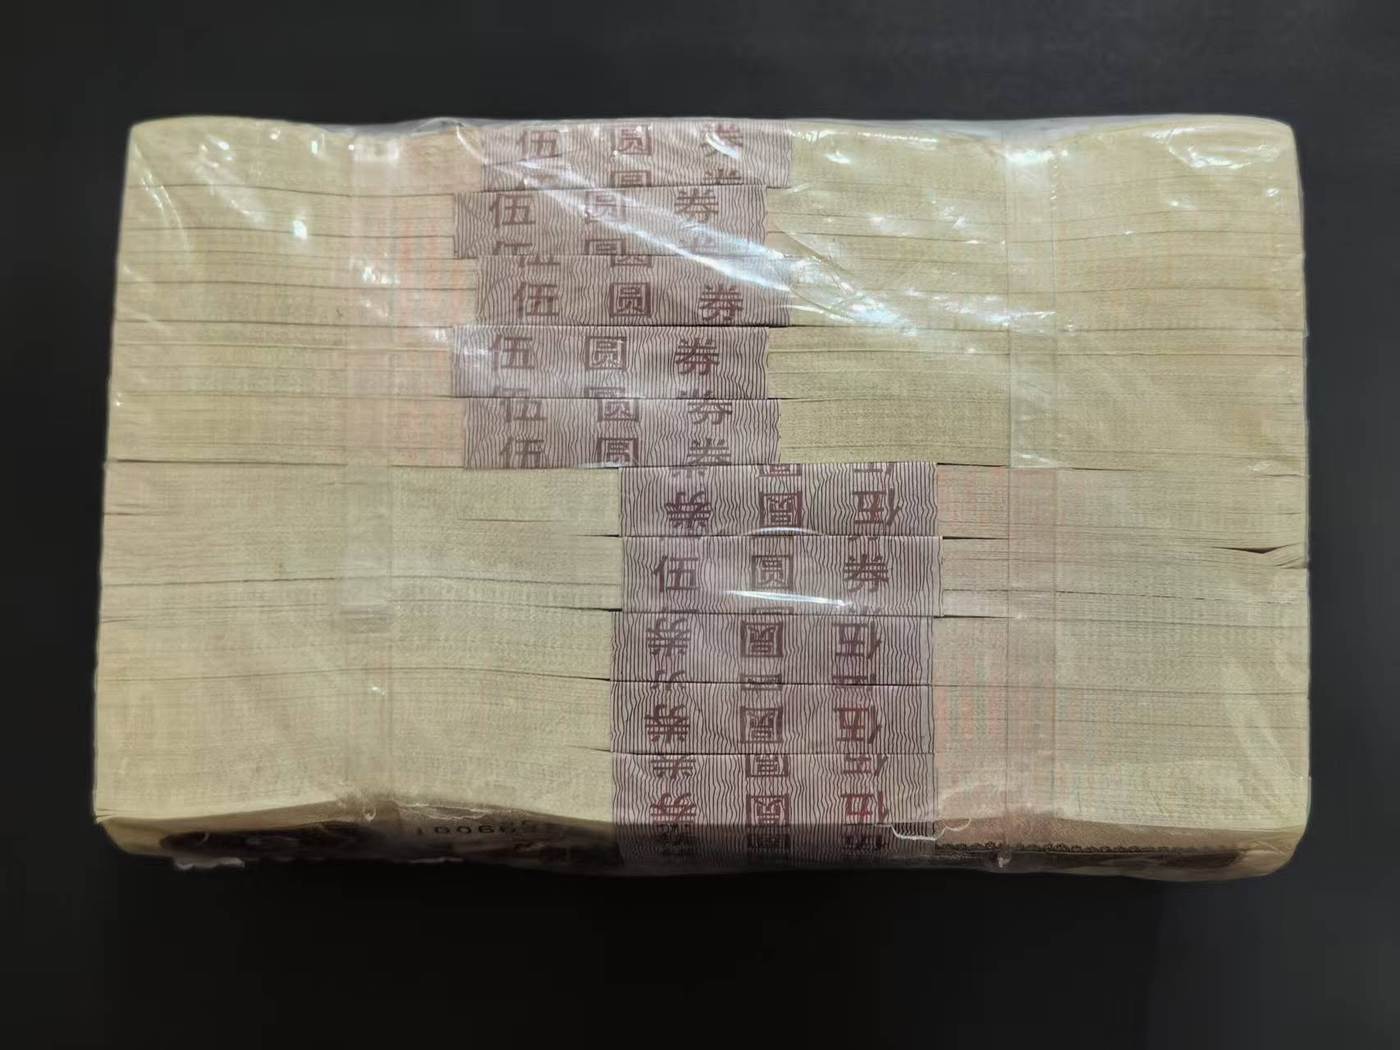 伍 圆 券
伍 圆 券
伍 圆 券
伍 圆 券
伍 圆 券
伍 圆 券
券 圆 伍
伍 圆 券
券 圆 伍
券 圆 伍
券 圆 伍
券 圆 伍